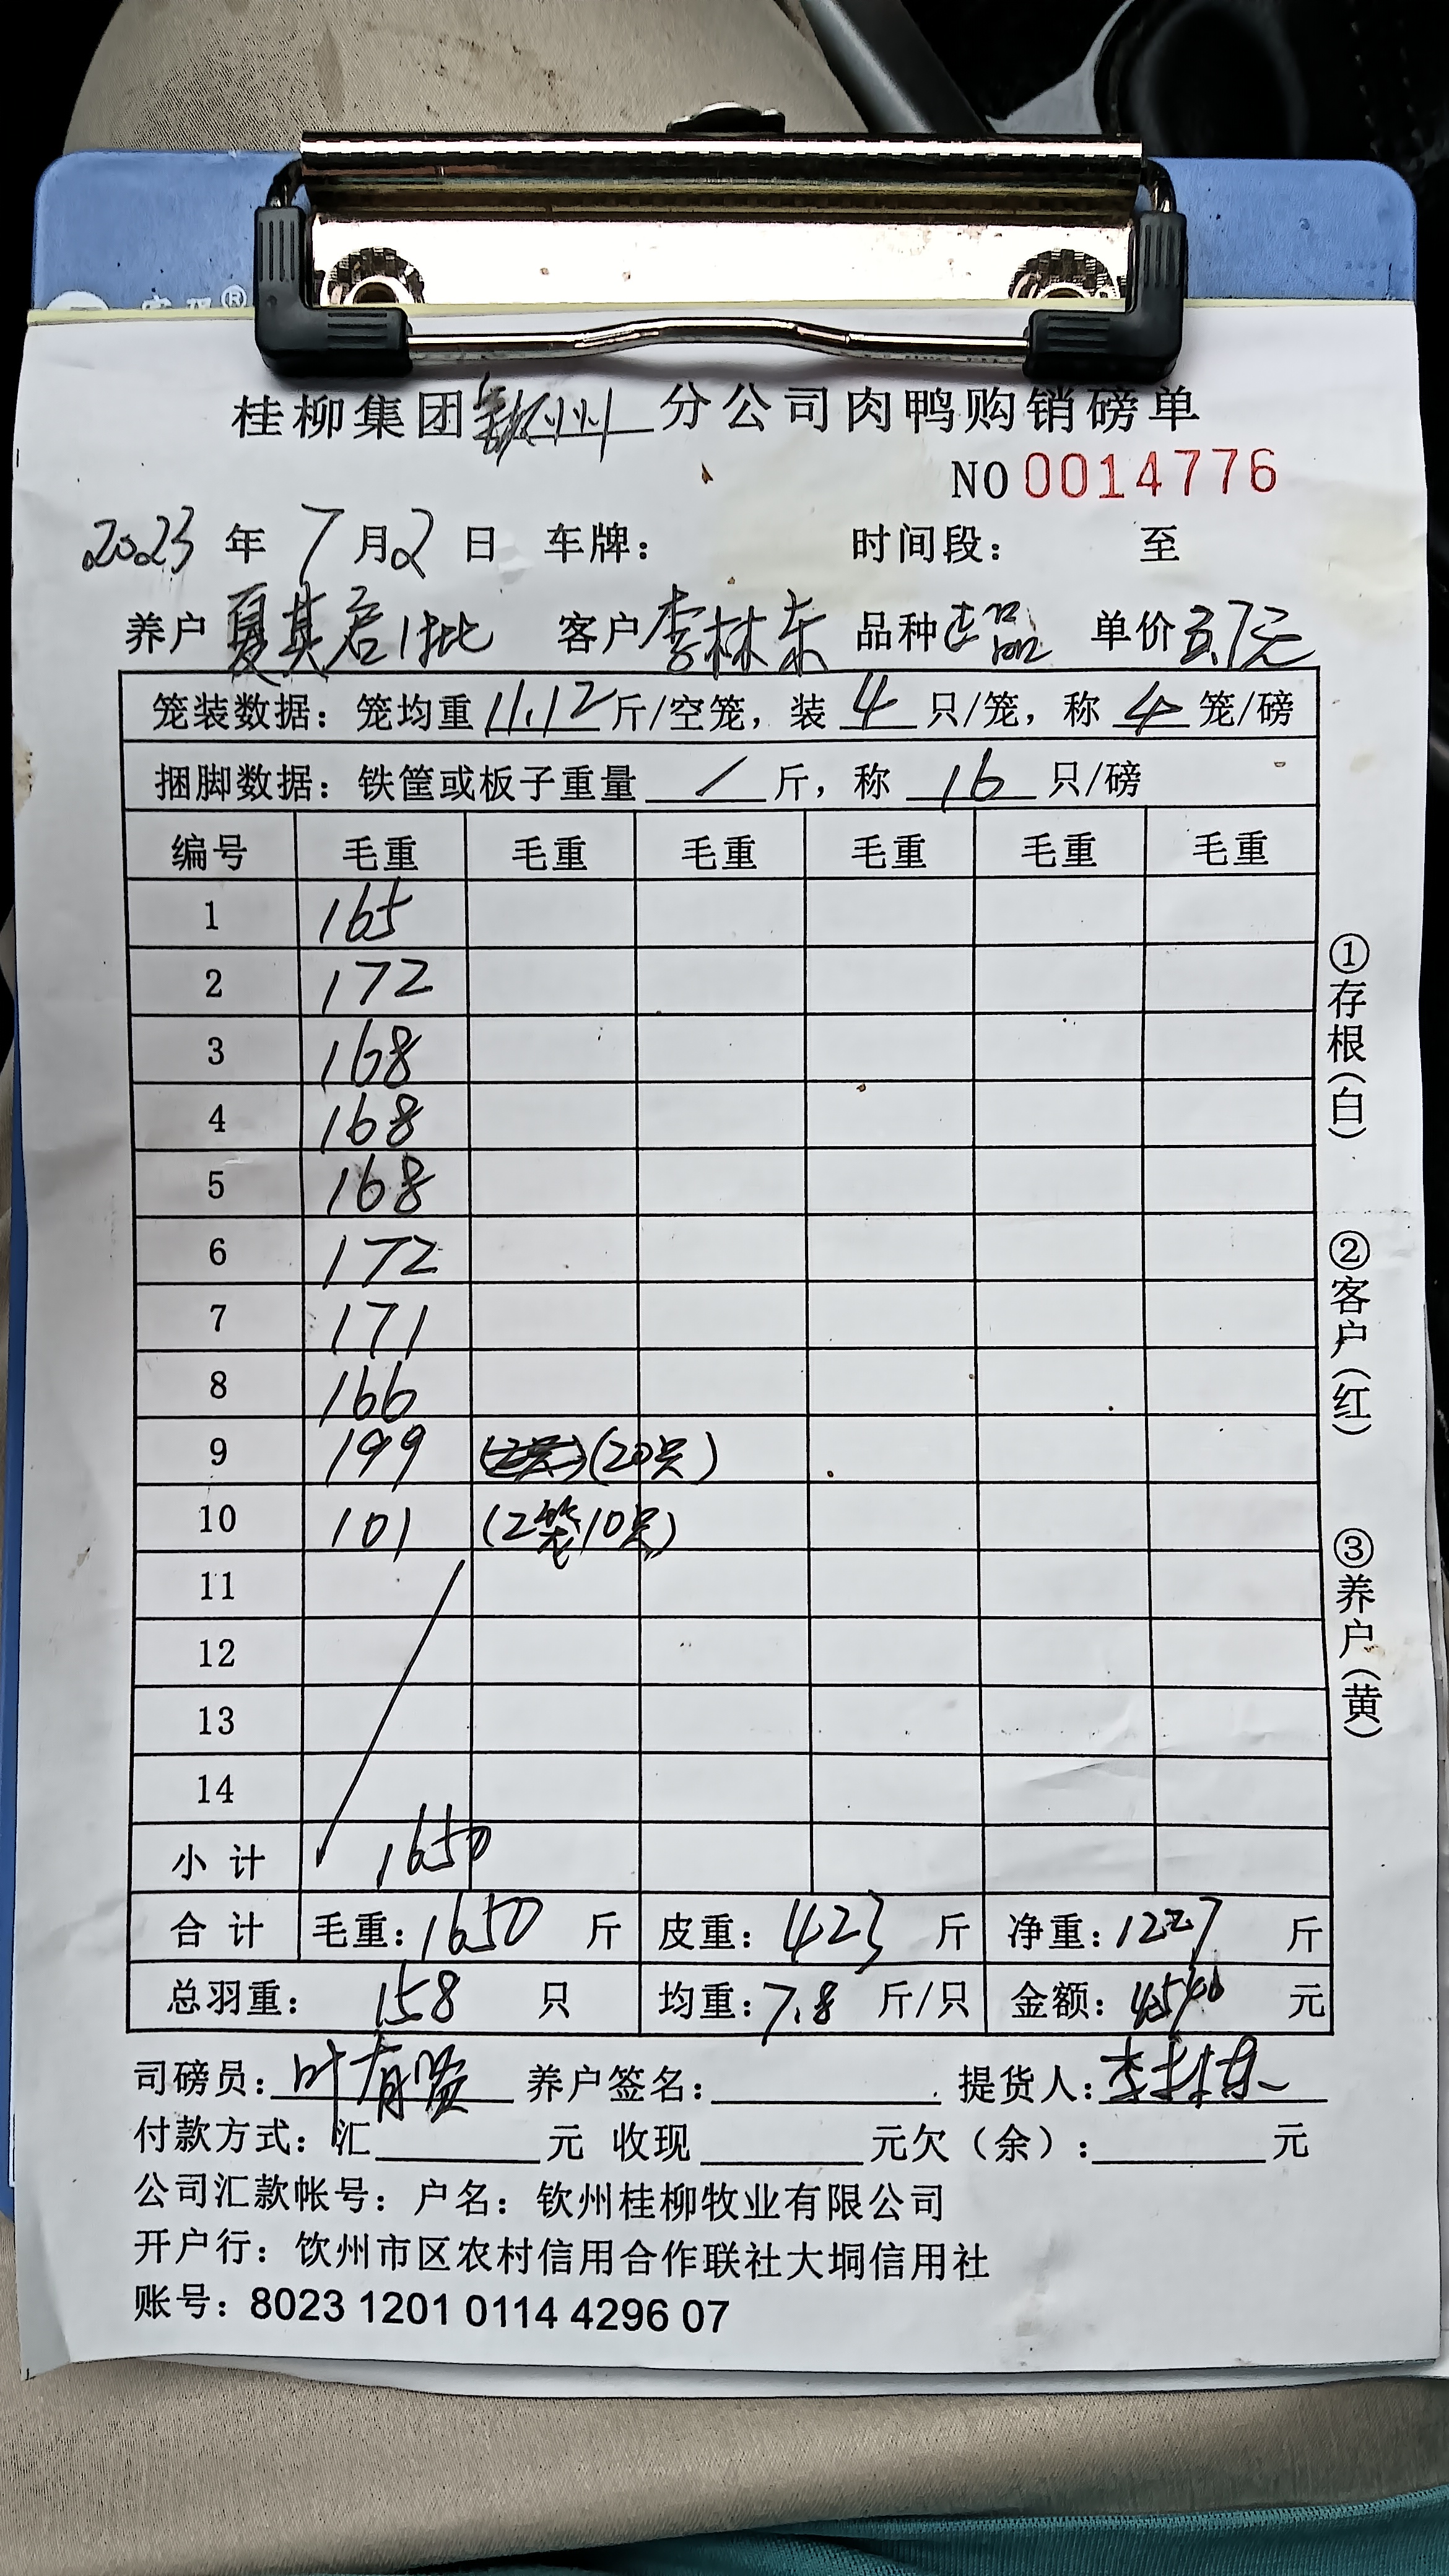 桂柳集团钦州分公司肉鸭购销磅单
NO 0014776
2023年7月2日 车牌： 时间段： 至
养户 夏其君1批 客户 李林东 品种 正品 单价 3.7元
笼装数据：笼均重11.12斤/空笼，装4只/笼，称4笼/磅
捆脚数据：铁筐或板子重量/斤，称16只/磅
编号 毛重 毛重 毛重 毛重 毛重 毛重
1 165
2 172
3 168
4 168
5 168
6 172
7 171
8 166
9 199 (20只)
10 101 (2笼10只)
11
12
13
14
小计 1650
合计 毛重：1650斤 皮重：423斤 净重：1227斤
总羽重：158只 均重：7.8斤/只 金额：4540元
司磅员：叶有 养户签名： 提货人：李林东
付款方式：汇 元 收现 元欠（余）： 元
公司汇款帐号：户名：钦州桂柳牧业有限公司
开户行：饮州市区农村信用合作联社大垌信用社
账号：8023 1201 0114 4296 07
①存根（白）
②客户（红）
③养户（黄）